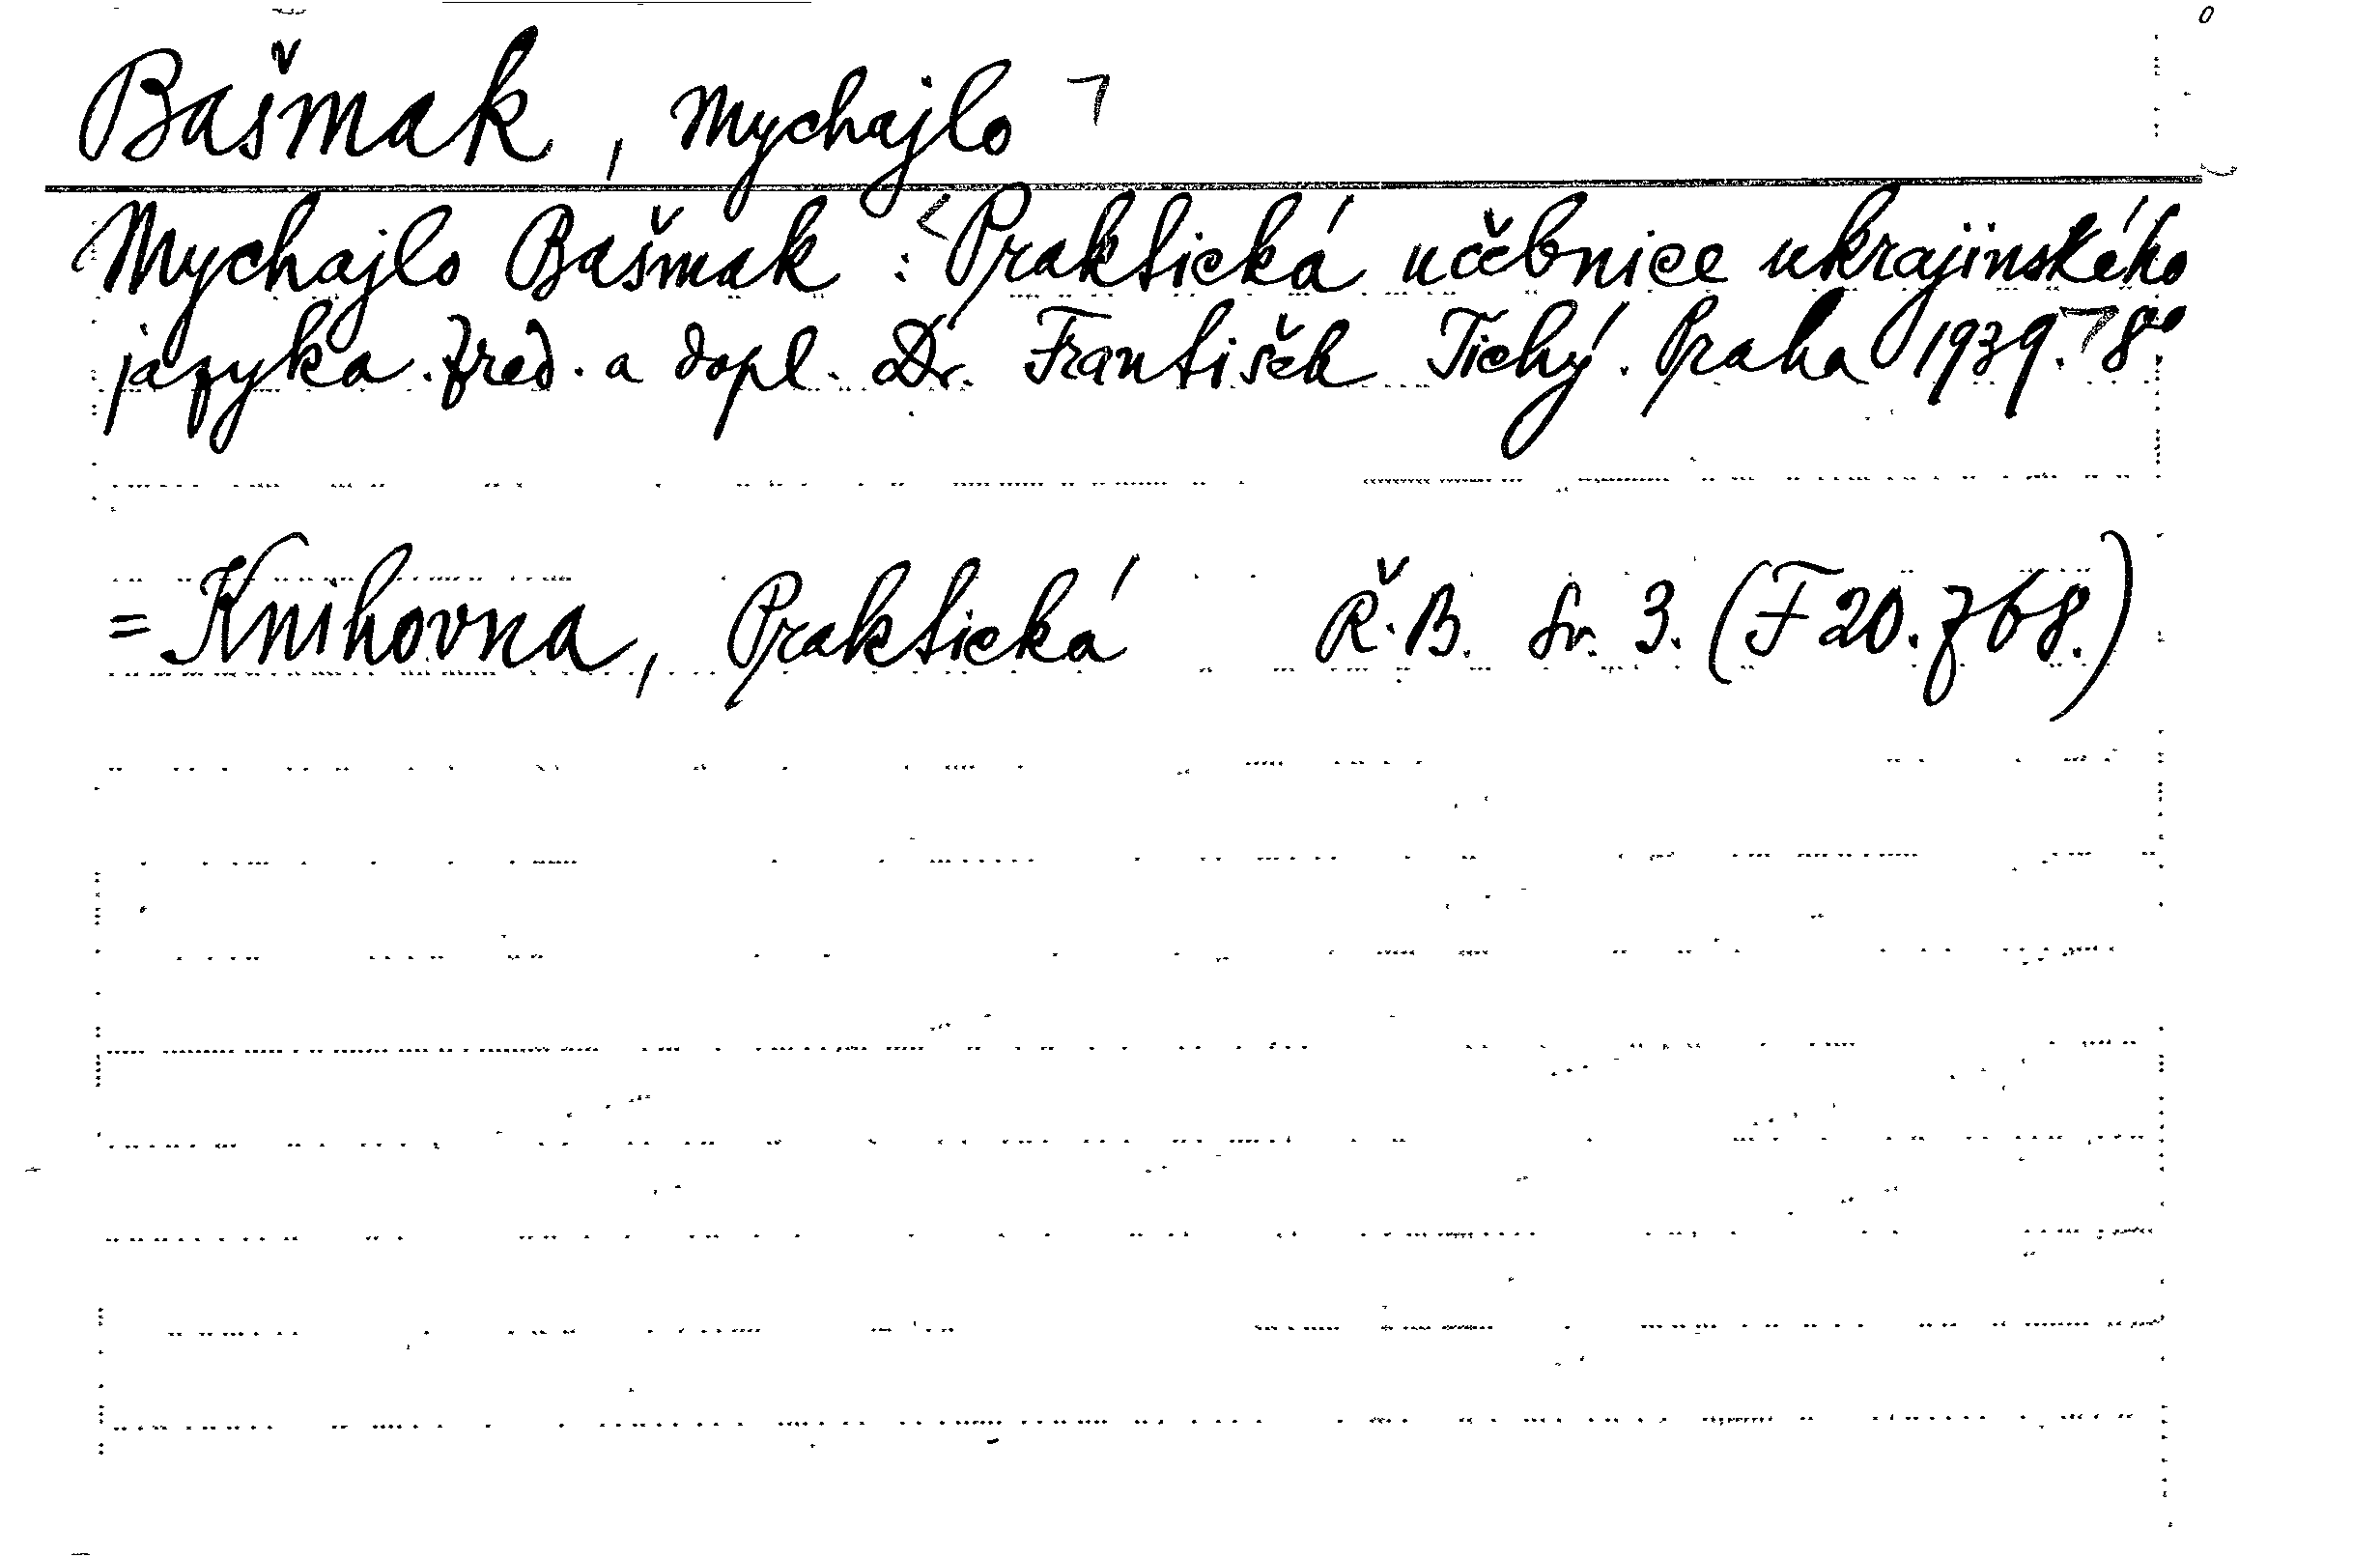 Bašmak, Mychajlo
Mychajlo Bašmak : Praktická učebnice ukrajinského
jazyka. Zred. a dopl. Dr. František Tichý. Praha 1939. 8°
= Knihovna, Praktická Ř.B. Sv. 3. (F 20.768.)